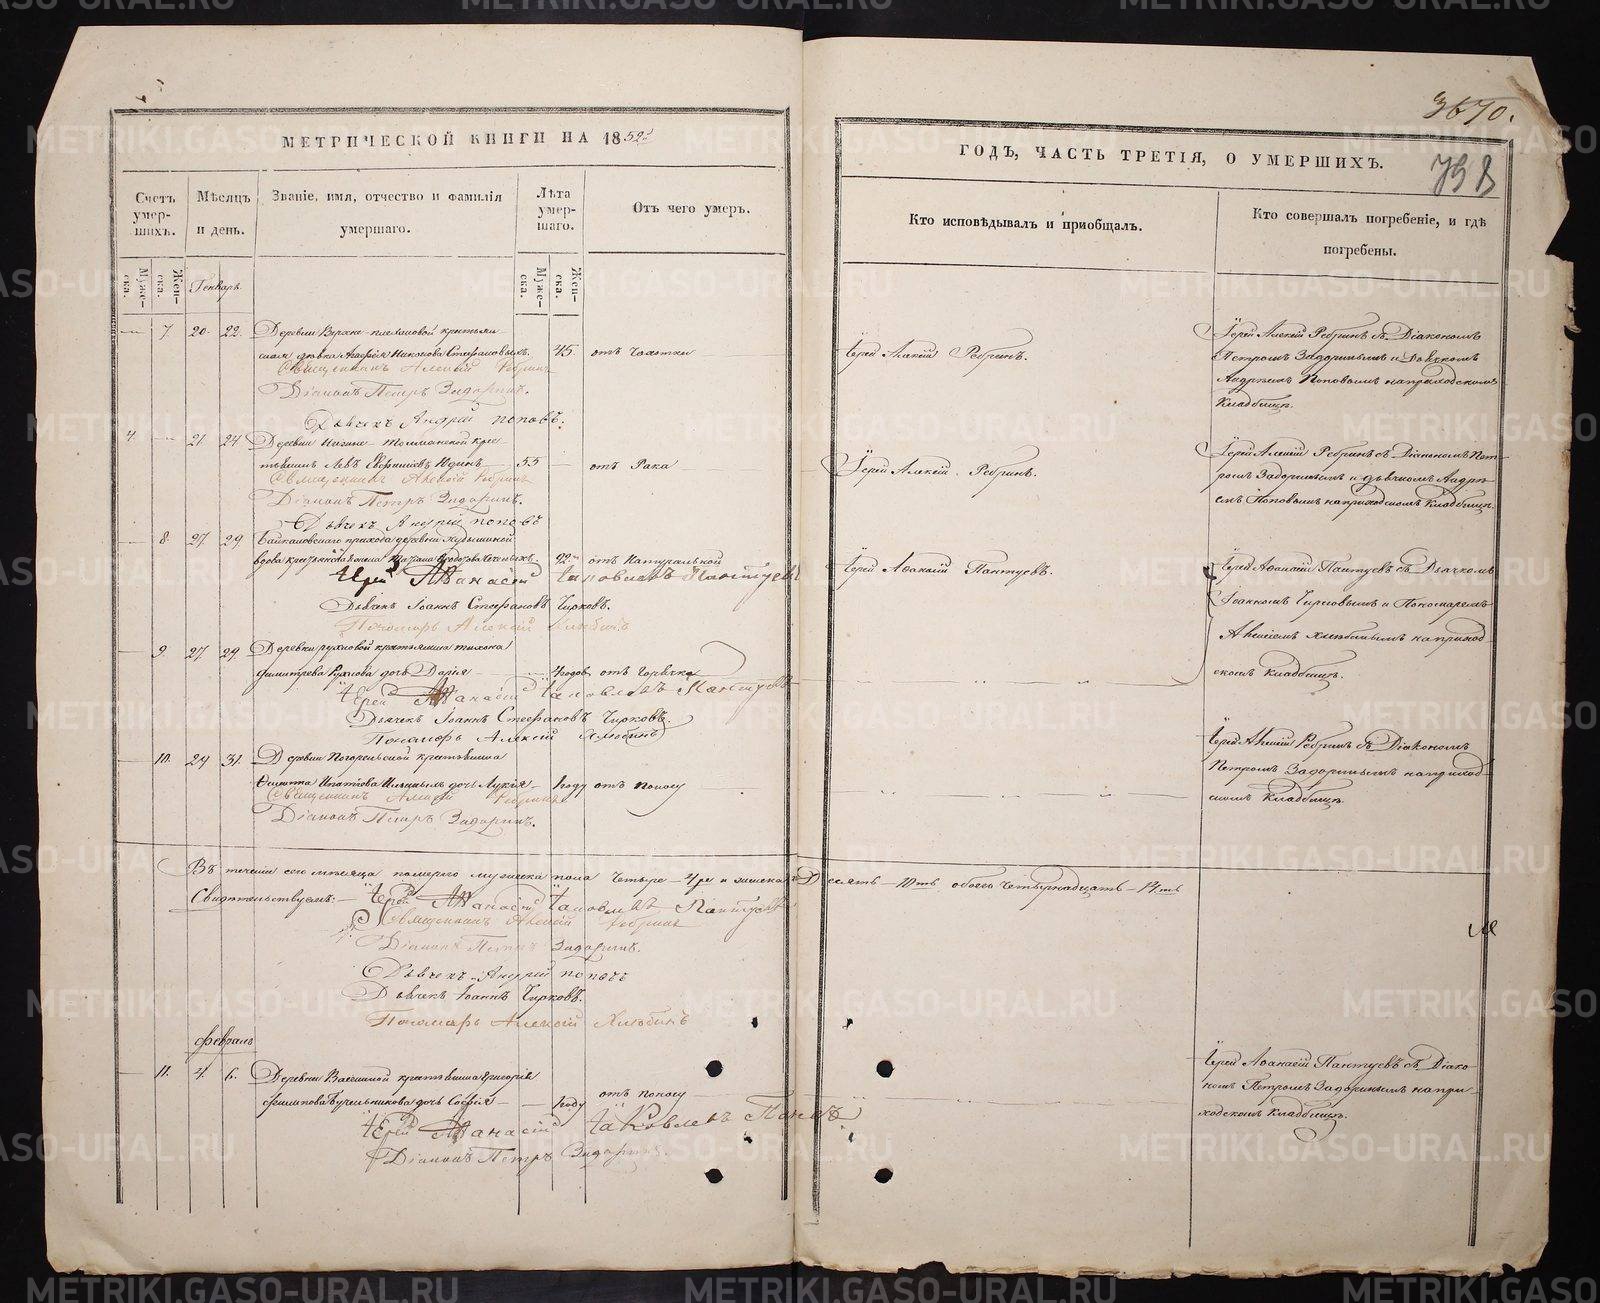 3670.
МЕТРИЧЕСКОЙ КНИГИ НА 1852й
ГОДЪ, ЧАСТЬ ТРЕТІЯ, О УМЕРШИХЪ.
Счетъ умер-
шихъ.
Мѣсяцъ
и день.
Званіе, имя, отчество и фамилія
умершаго.
Лѣта
умер-
шаго.
Отъ чего умеръ.
Кто исповѣдывалъ и пріобщалъ.
Кто совершалъ погребеніе, и гдѣ
погребены.
Муже-
ска.
Жен-
ска.
Генварь
Муже-
ска.
Жен-
ска.
7. 20. 22. Деревни Верхне- крестьян-
ская дѣвка Агафія Никонова Стефановыхъ. 45. отъ Чахотки
Священникъ Алексій Ребринъ
Діаконъ Петръ Задоринъ.
Дьячекъ Андрей Поповъ.
Іерей Алексій Ребринъ.
Іерей Алексій Ребринъ съ Діакономъ
Петромъ Задоринымъ и Дьячкомъ
Андреемъ Поповымъ на приходскомъ
Кладбищѣ.
4. 21. 24. Деревни Нижне- крес-
тьянинъ Левъ Юдинъ 55 отъ Рака
Священникъ Алексій Ребринъ
Діаконъ Петръ Задоринъ.
Дьячекъ Андрей Поповъ
Іерей Алексій Ребринъ.
Іерей Алексій Ребринъ съ Діакономъ Пет-
ромъ Задоринымъ и дьячкомъ Андре-
емъ Поповымъ на приходскомъ Кладбищѣ.
8. 27. 29. Байкаловскаго прихода деревни
вдова 92. отъ Натуральной
Іерей Афанасій Іаковлевъ Пантуевъ
Дьячекъ Іоаннъ Стефановъ Чирковъ.
Пономарь Алексій Хлюбинъ
Іерей Афанасій Пантуевъ.
Іерей Афанасій Пантуевъ съ Дьячкомъ
Іоанномъ Чирковымъ и Пономаремъ
Алексіемъ Хлюбинымъ на приход-
скомъ Кладбищѣ.
9. 27. 29. Деревни Рухловой крестьянина Тихона
Димитрева Рухлова дочь Дарія 4 годов отъ Горячки
Іерей Афанасій Іаковлевъ Пантуевъ
Дьячекъ Іоаннъ Стефановъ Чирковъ.
Пономарь Алексій Хлюбинъ
10. 29 31. Деревни Погорельской крестьянина
Ипатова Ильиныхъ дочь Лукія 1 году отъ поносу
Священникъ Алексій Ребринъ
Діаконъ Петръ Задоринъ.
Іерей Алексій Ребринъ съ Діакономъ
Петромъ Задоринымъ на приход-
скомъ Кладбищѣ.
Въ теченіи сего мѣсяца померло мужеска пола Четыре - 4ре и женска Десять - 10ть обоего Четырнадцать - 14ть
Свидѣтельствуемъ: Іерей Афанасій Іаковлевъ Пантуевъ
Священникъ Алексій Ребринъ
Діаконъ Петръ Задоринъ.
Дьячекъ Андрей Поповъ
Дьячекъ Іоаннъ Чирковъ.
Пономарь Алексій Хлюбинъ
Февраль
11. 4. 6. Деревни крестьянина Григорія
Филипова дочь Софія 1 году отъ поносу
Іерей Афанасій Іаковлевъ
Діаконъ Петръ Задоринъ.
Іерей Афанасій Пантуевъ съ Діако-
номъ Петромъ Задоринымъ на при-
ходскомъ Кладбищѣ.
METRIKI.GASO-URAL.RU